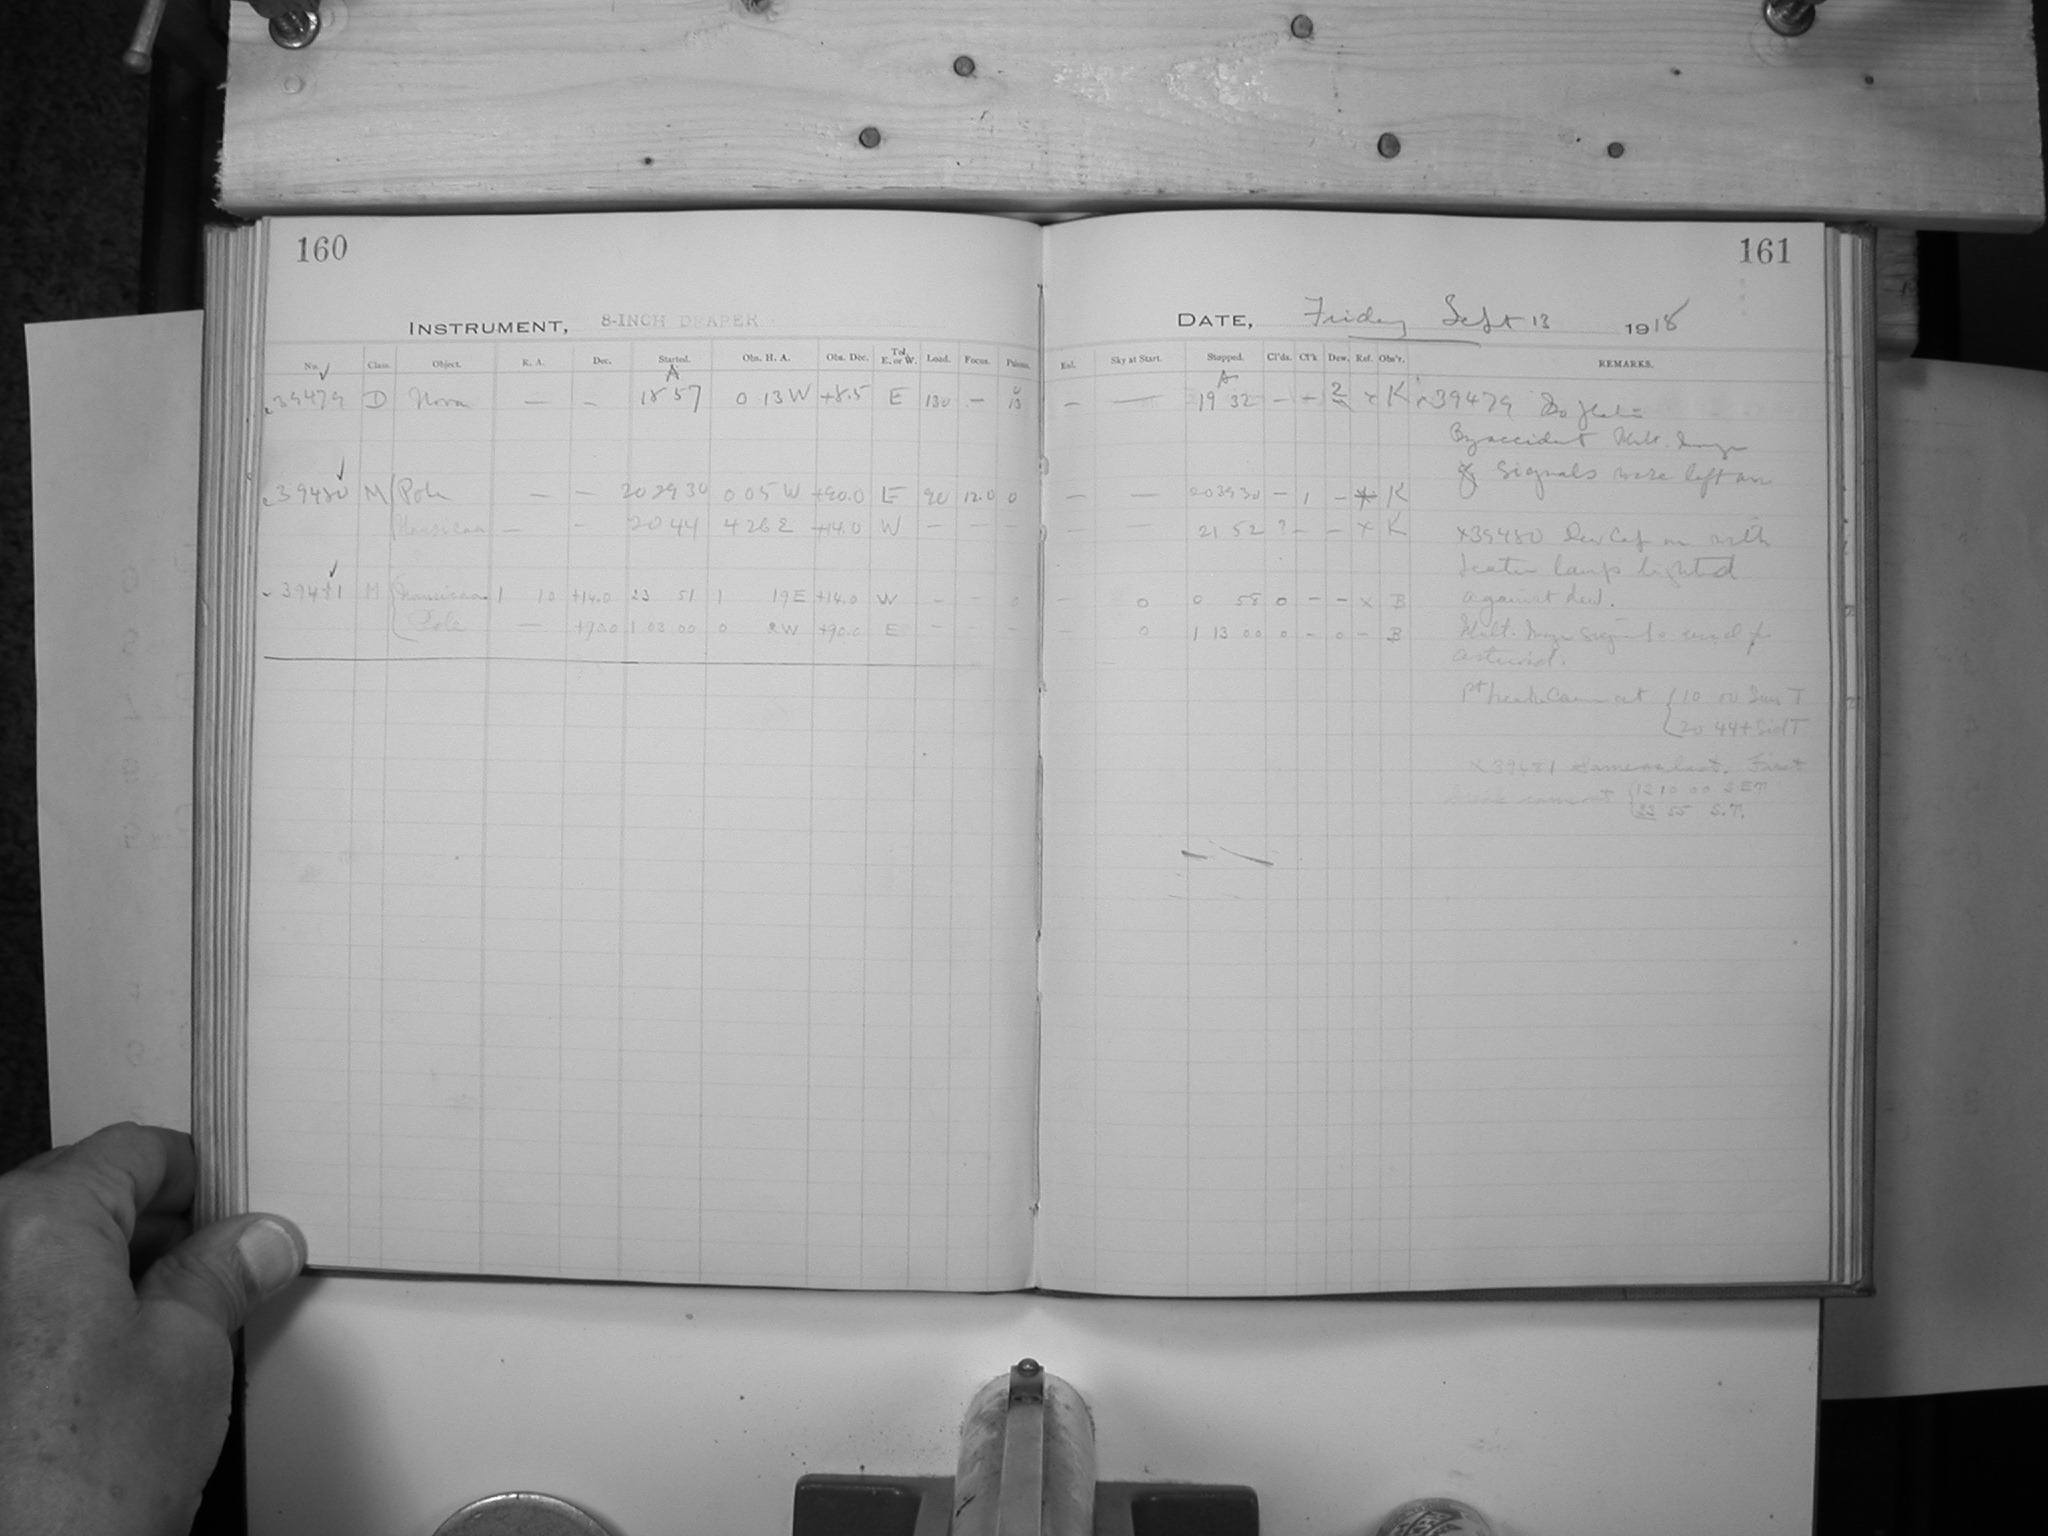 160
INSTRUMENT, 8-INCH DRAPER
No. Class. Object. R. A. Dec. Started. Obs. H. A. Obs. Dec. Tel. E. or W. Load. Focus.
A
39479 D Nova — — 18 57 0 13 W +8.5 E 130 — 13
39480 M Pole — — 20 29 30 0 05 W +90.0 E 90 12.0 0
Nausicaa — — 20 44 4 26 E +14.0 W — — —
39481 M Nausicaa 1 10 +14.0 23 51 1 19 E +14.0 W — — 0
Pole — +90.0 1 03 00 0 2 W +90.0 E — — —
161
DATE, Friday Sept 13 1918
Sky at Start. Stopped. Cl'ds. Cl'k Dew. Ref. Obs'r. REMARKS.
A
— — 19 32 — — 2 x K x39479
By accident
Signals were left on
— — 20 39 30 — 1 — x K
— — 21 52 ? — — x K x39480 Dew Cap on with
heater lamp lighted
— 0 0 58 0 — — x B against dew.
— 0 1 13 00 0 — 0 — B
asteroid.
10 00 Sum T
20 44+ Sid T
x39481 Same as last. First
12 10 00 S.E.T.
23 55 S.T.